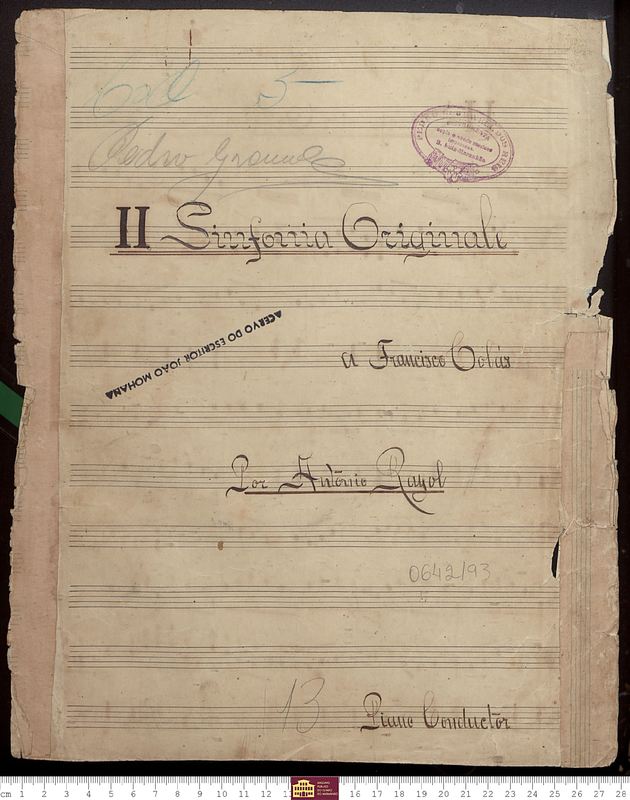 5
Pedro
II Sinfonia Originale
ACERVO DO ESCRITOR JOÃO MOHANA
a Francisco Colás
Por António Rayol
0642/93
13
Piano Conductôr
cm 1 2 3 4 5 6 7 8 9 10 11 12 16 17 18 19 20 21 22 23 24 25 26 27 28